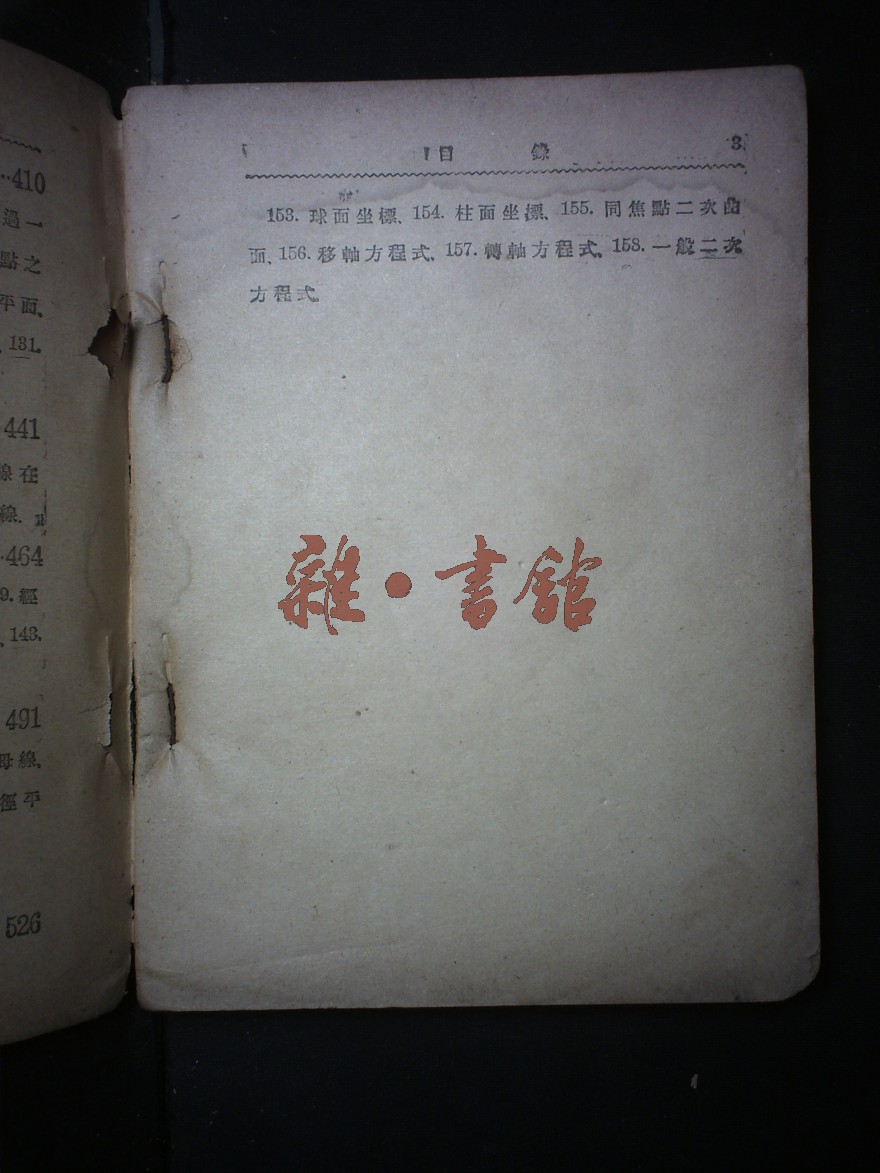 ··410
過一
點之
平面、
、131.
·441
線在
線.
·464
9.經
、143.
491
母線、
徑平
526
目 錄 3
153. 球面坐標、154. 柱面坐標、155. 同焦點二次曲
面、156. 移軸方程式、157. 轉軸方程式、158. 一般二次
方程式。
雜·書館